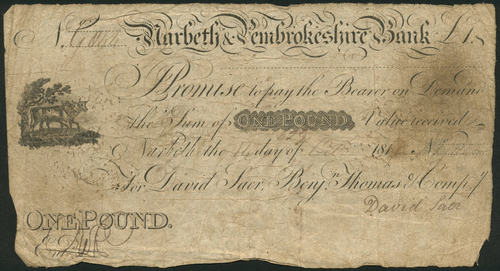 Narbeth & Pembrokeshire Bank £1.
I Promise to pay the Bearer on Demand
the Sum of ONE POUND Value received
Narbeth the day of 181
For David Saer, Benjn. Thomas & Compy.
David Saer
ONE POUND.